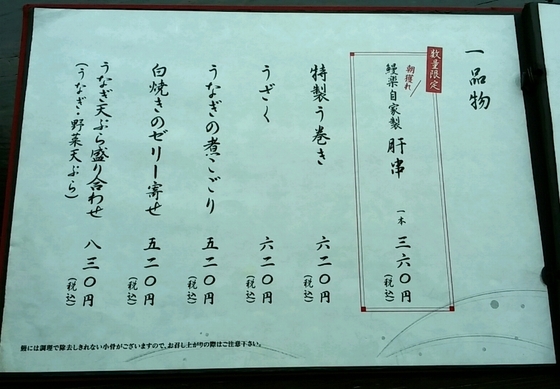 一品物
数量限定
朝獲れ
鰻楽自家製 肝串 一本 三六〇円
(税込)
特製う巻き 六二〇円
(税込)
うざく 六二〇円
(税込)
うなぎの煮こごり 五二〇円
(税込)
白焼きのゼリー寄せ 五二〇円
(税込)
うなぎ天ぷら盛り合わせ 八三〇円
(うなぎ・野菜天ぷら) (税込)
鰻には調理で除去しきれない小骨がございますので、お召し上がりの際はご注意下さい。